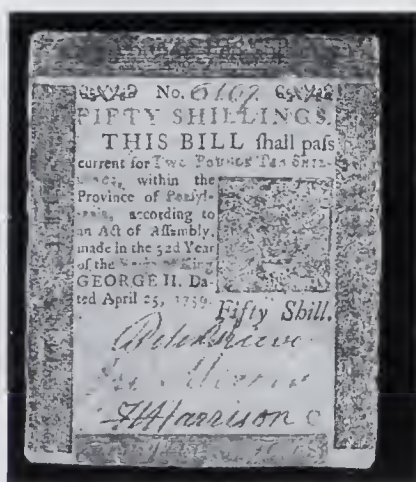 No. 6167.
FIFTY SHILLINGS.
THIS BILL ſhall paſs
current for Two Pounds Ten Shil-
lings, within the
Province of Penſyl-
vania, according to
an Act of Aſſembly,
made in the 32d Year
of the Reign of King
GEORGE II. Da-
ted April 25, 1759.
Fifty Shill.
Harrison